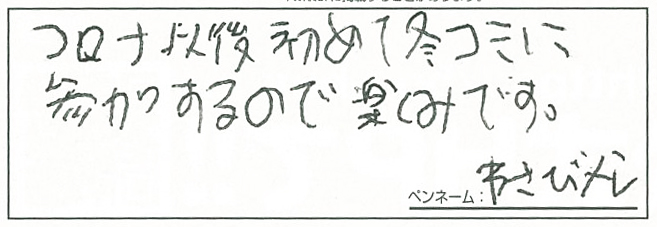 コロナ以後初めて冬コミに
参加するので楽しみです。
ペンネーム：わさびメシ